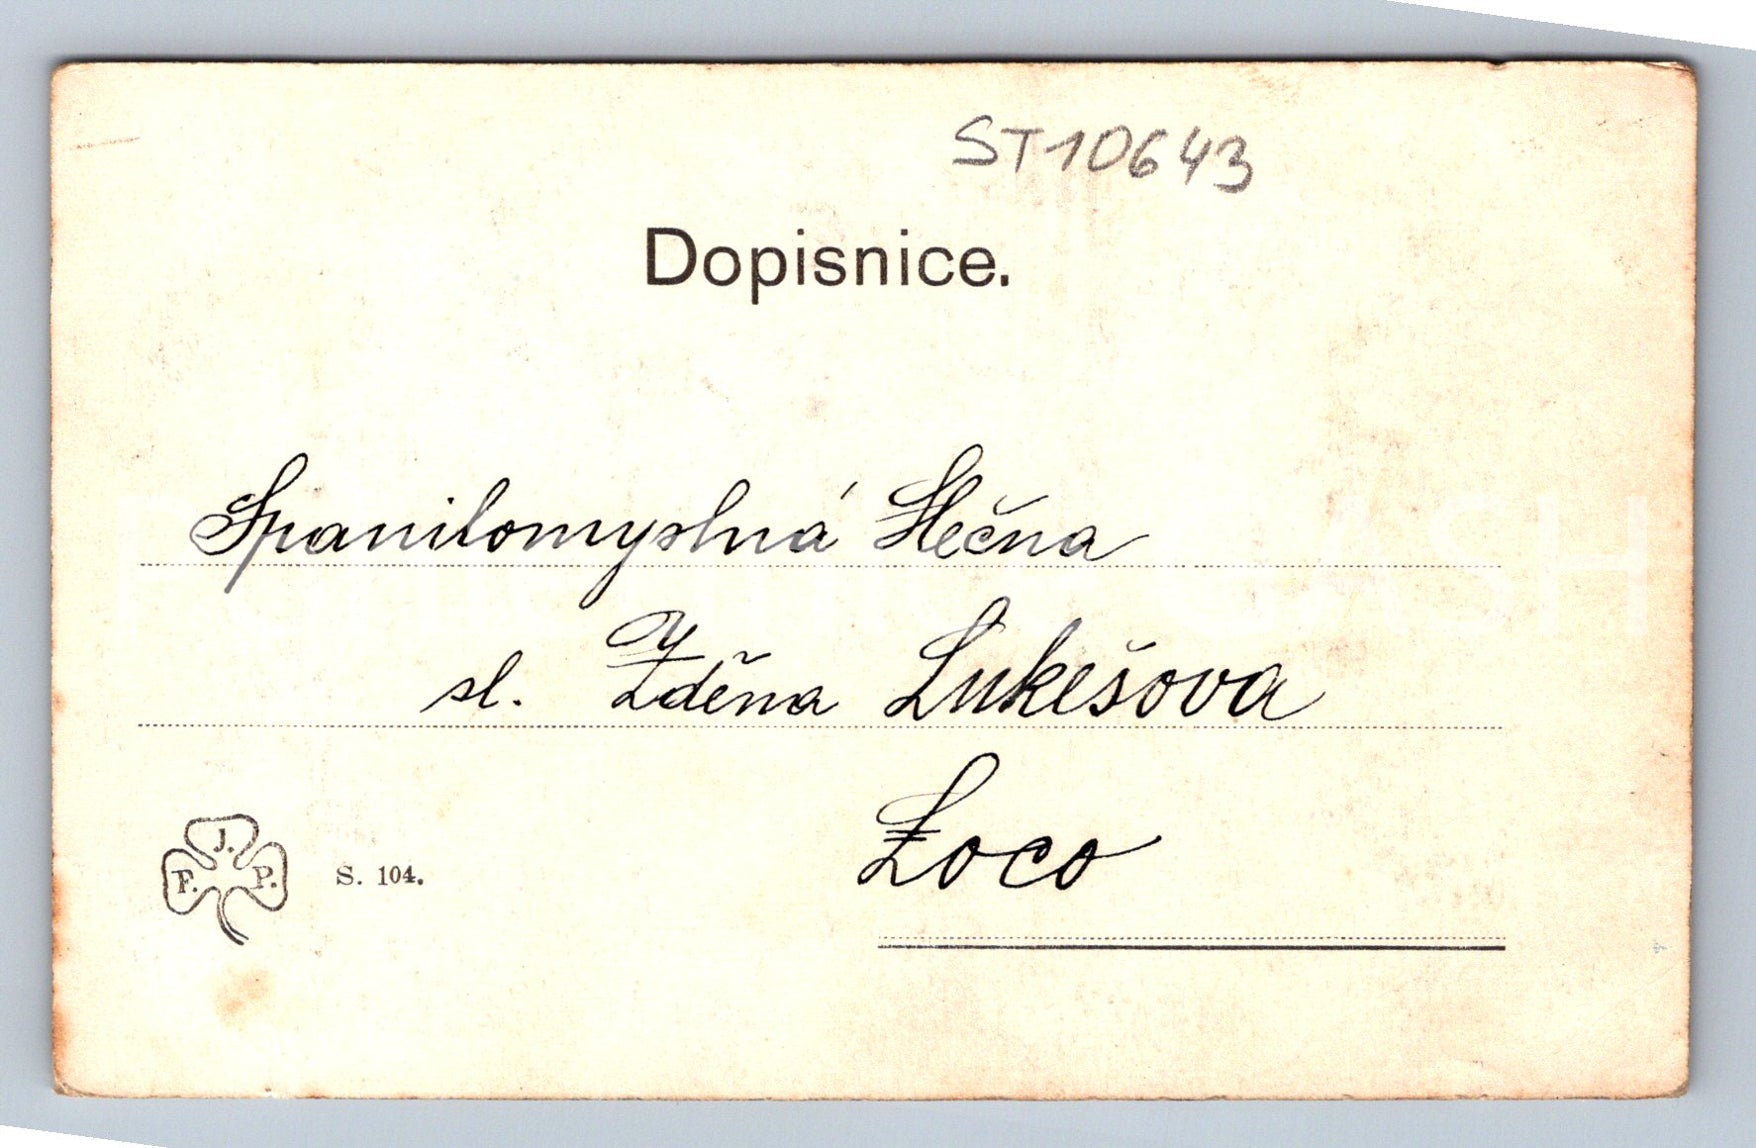 ST10643
Dopisnice.
Spanilomyslná Slečna
sl. Zděna Lukešova
Loco
J.
F. P.
S. 104.